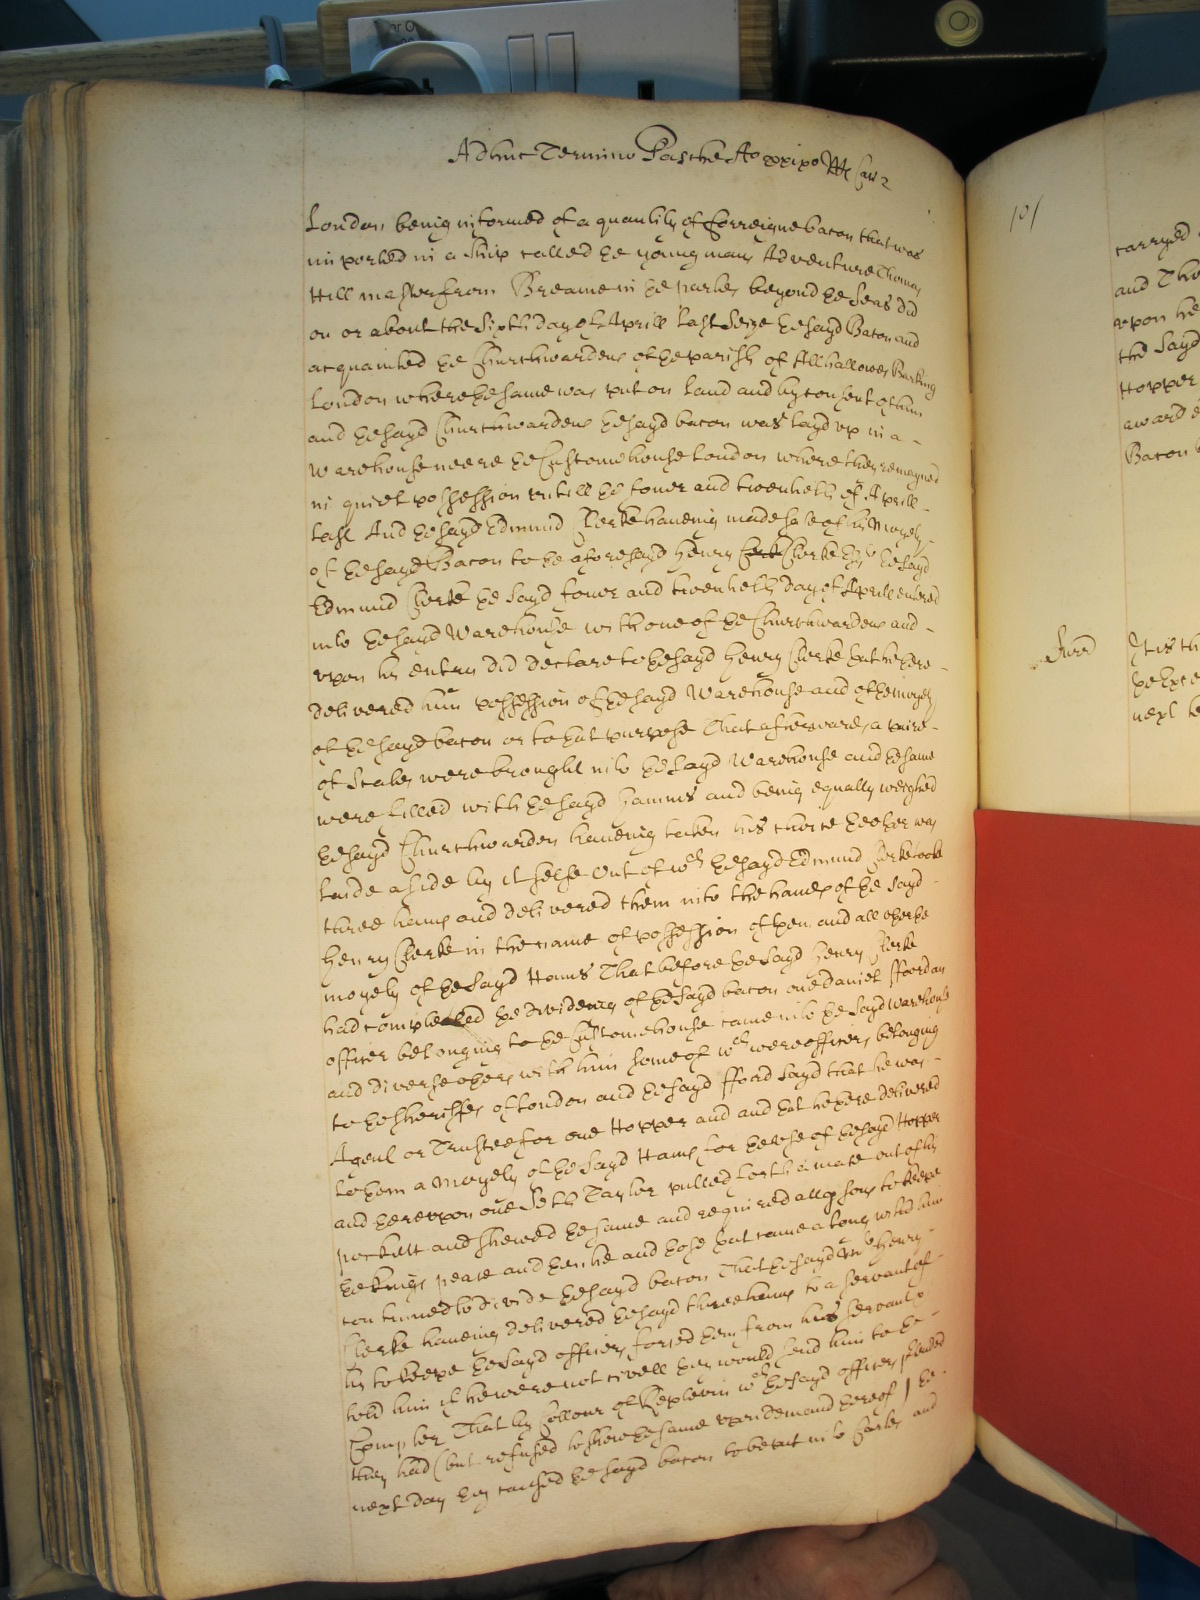 Adhuc Termino Pasche Ao xxixo RRs Car 2
London being informed of a quantity of fforreigne bacon that was
imported in a Ship called ye young mans Adventure Thomas
Hill master from Breame in ye partes beyond ye Seas did
on or about the Sixth day of Aprill last Seize ye sayd Bacon and
acquainted ye Churchwardens of ye parish of Allhallowes Barking
London where ye same was put on Land and by consent of him
and ye sayd Churchwardens ye sayd bacon was layd vp in a
Warehouse neere ye Customehouse London where they remayned
in quiet possession vntill ye fower and twentieth of Aprill
last And ye sayd Edmund Clerke haueing made sale of his Moyety
of ye sayd Bacon to ye aforesayd Henry Clerke Esqr ye sayd
Edmund Clerke ye sayd fower and twentieth day of Aprill entered
into ye sayd Warehouse with one of ye Churchwardens and
vpon his entry did declare to ye sayd Henry Clerke yat he there
delivered him possession of ye sayd Warehouse and of the moyety
of ye sayd bacon or to yat purpose That afterwards a paire
of Scales were brought into ye sayd Warehouse and ye same
were filled with ye sayd Hamms and being equally weighed
ye sayd Churchwarden haueing taken his choice ye other was
laide aside by it selfe Out of wch ye sayd Edmund Clerke tooke
three hams and delivered them into the hands of ye sayd
Henry Clerke in the name of possession of them and all other ye
moyety of ye sayd Hams That before ye sayd Henry Clerke
had compleated ye divideing of ye sayd bacon one Daniel fford an
officer belonging to ye Customehouse came into ye sayd warehouse
and diverse others with him some of wch were officers belonging
to ye Sheriffes of London and ye sayd fford sayd that he was
Agent or Trustee for one Hopper and and yat he there delivered
to them a Moyety of ye sayd Hams for ye vse of ye sayd Hopper
and therevpon one Seth Taylor pulled forth a mace out of his
pockett and shewed ye same and required all psons to keepe
ye Kings peace and then he and those yat came along with him
continued to divide ye sayd bacon That ye sayd Henry
Clerke haueing delivered ye sayd three hams to a servant of
his to keepe ye sayd officers forced them from his servant &
told him if he were not civell they would send him to ye
Compter That by Collour of Replevin wch ye sayd officers pretended
they had (but refused to shew ye same vpon demand thereof) ye
next day they caused ye sayd bacon to be put into Carts and
101
carryed
and Tho
vpon he
the Sayd
Hopper
award
Bacon
Jurd
It is th
ye Exce
next te